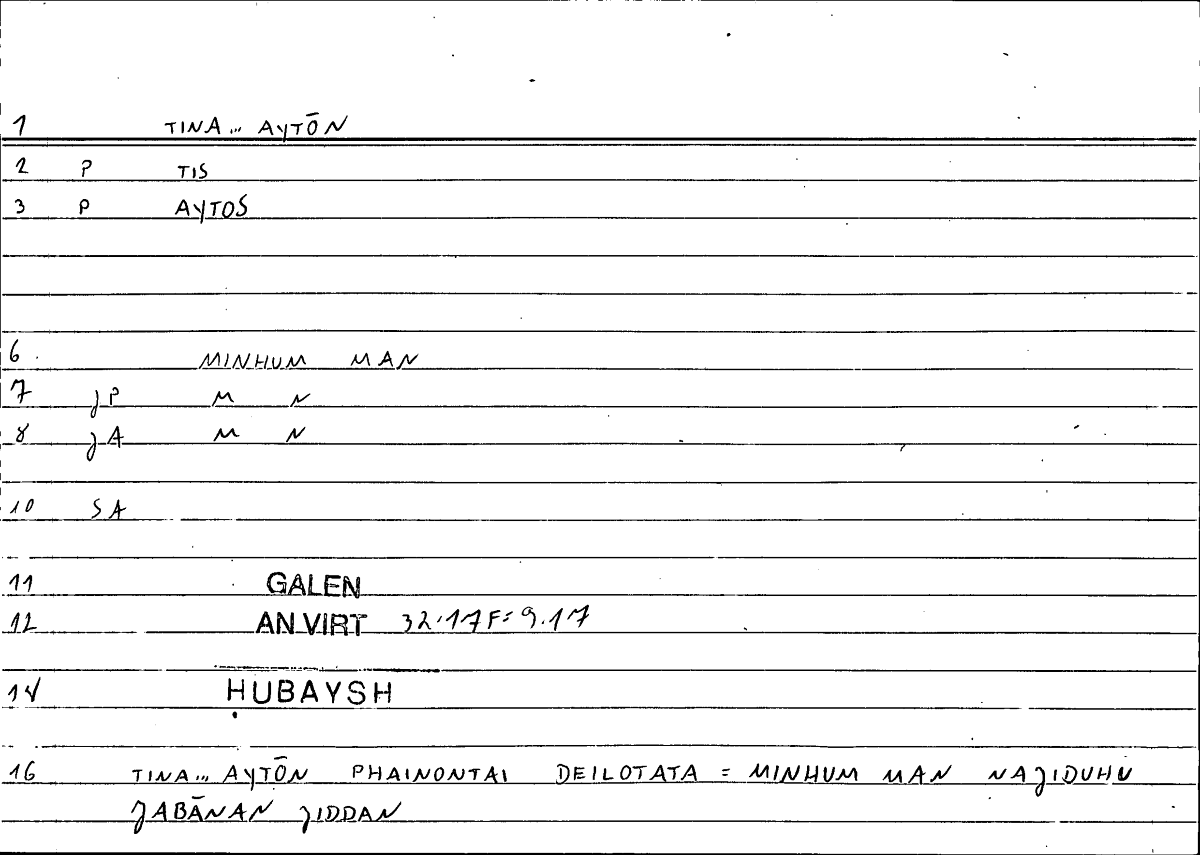 1 TINA... AYTŌN
2 P TIS
3 P AYTOS
6 MINHUM MAN
7 JP M N
8 JA M N
10 SA
11 GALEN
12 AN VIRT 32.17F=9.17
14 ḤUBAYSH
16 TINA... AYTŌN PHAINONTAI DEILOTATA = MINHUM MAN NAJIDUHU
JABĀNAN JIDDAN